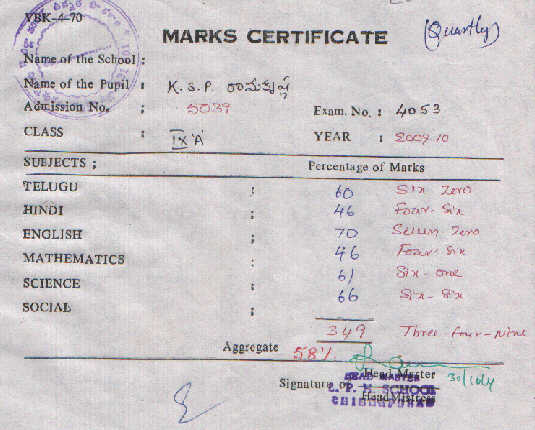 VBK-4-70
MARKS CERTIFICATE (Quartly)
Name of the School :
Name of the Pupil : K.S.P. రామకృష్ణ
Admission No. : 5039 Exam. No. : 4053
CLASS : IX 'A' YEAR : 2009-10
SUBJECTS ; Percentage of Marks
TELUGU ; 60 Six Zero
HINDI ; 46 Four-Six
ENGLISH ; 70 Seven Zero
MATHEMATICS ; 46 Four-Six
SCIENCE ; 61 Six-one
SOCIAL ; 66 Six-Six
349 Three four-nine
Aggregate 58%
Head Master
HEAD MASTER
Signature of
SCHOOL
Head Mistress